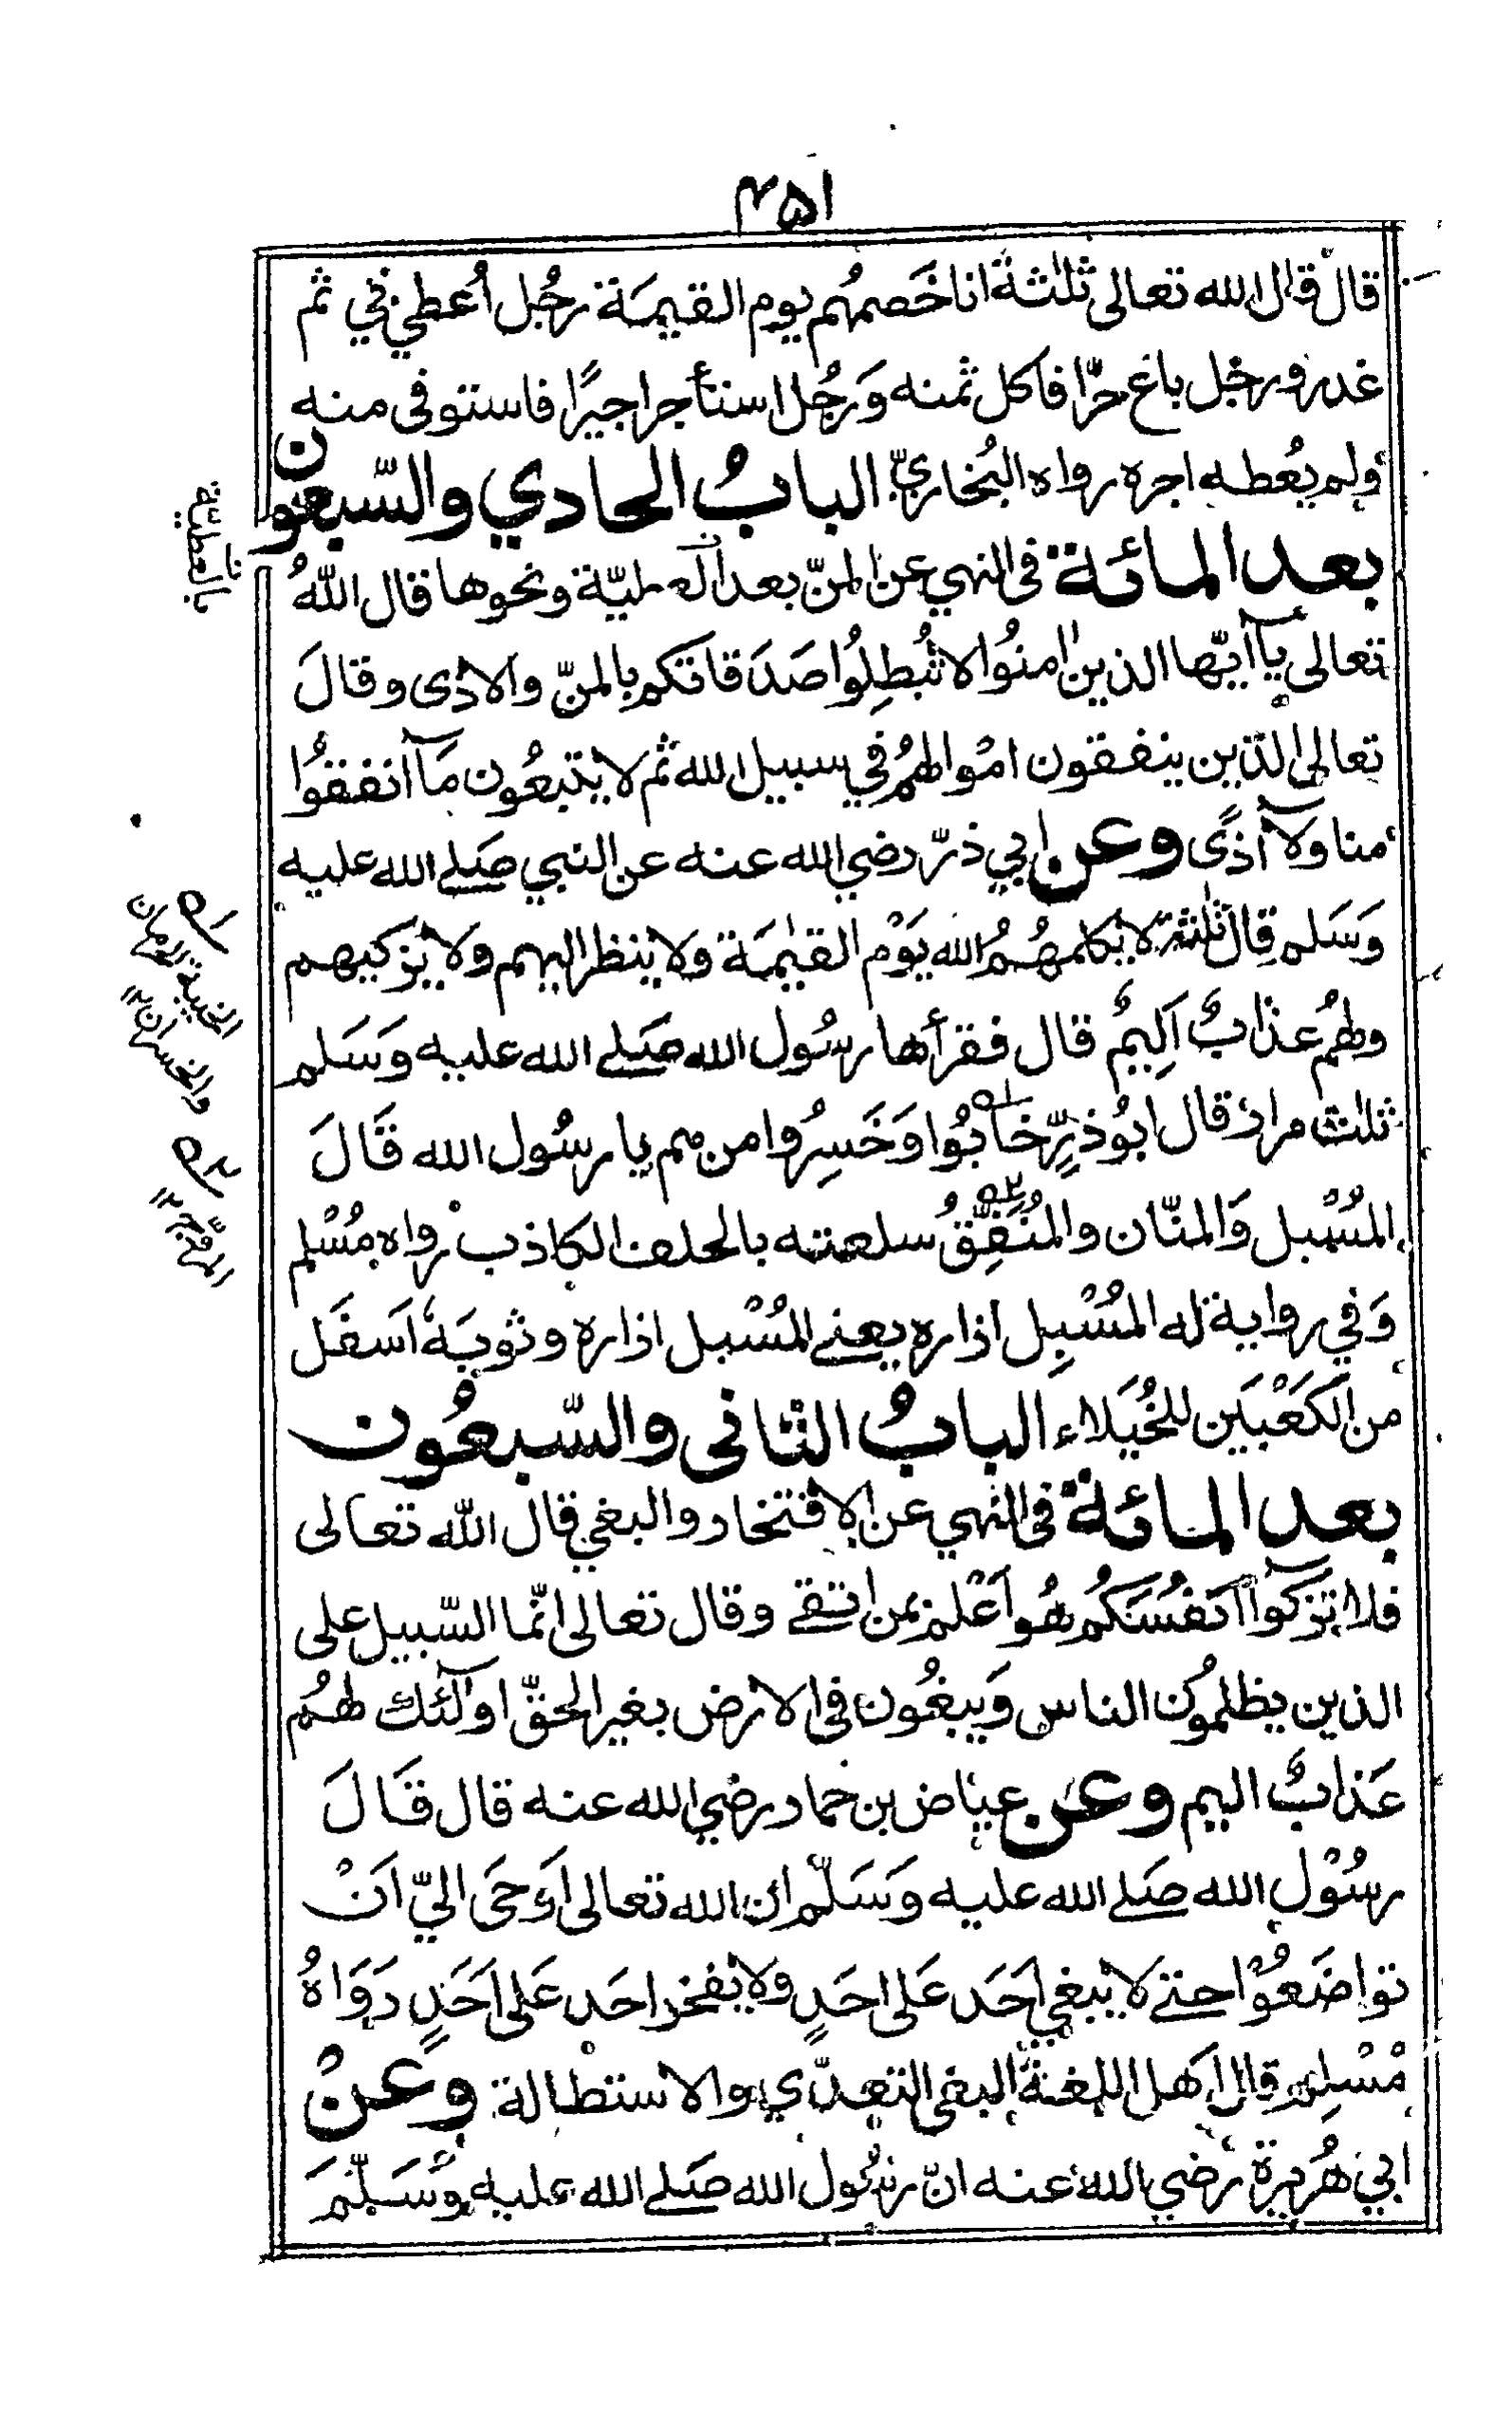 ٤٥١
قال قال الله تعالى ثلثةٌ انا خَصمهُم يوم القيمَة رجُل أعطي في ثم
غدر ورجل باع حرّا فاكل ثمنه وَرجُل استأجر اجيرًا فاستوفى منه
ولم يُعطه اجره رواه البُخاريّ البابُ الحادي والسّبعون
بعد المائة في النهي عن المنّ بعد العطيّة ونحوها قال اللهُ
تعالى يآ ايّها الذين اٰمنُوا لا تُبطِلُوا صَدَقاتكم بالمنّ والاذى وقالَ
تعالى الّذين ينفقون امْوالهمُ في سبيل الله ثم لا يتبعُون مَآ أنفقوُا
منا ولآ أذًى وعن ابي ذرّ رضي الله عنه عن النبي صَلے الله عليه
وَسَلم قال ثلٰثة لا يكلمهُمُ الله يَوْم القيٰمَة ولا ينظر اليهم ولا يزكيهم
ولهمُ عذابٌ اَلِيمٌ قال فقرأها رسُول الله صَلے الله عليه وَسَلم
ثلٰث مرار قال ابُو ذرٍّ خابُوا وَخَسِرُوا من هم يا رسُول الله قَالَ
المُسْبل وَالمنّان والمُنَفِّقُ سلعته بالحلف الكاذب رواه مُسْلم
وَفي رواية له المُسْبِل ازاره يعنے المُسْبل ازاره وثوبَهٗ اَسفَل
من الكَعْبَين للخُيَلاء البابُ الثانى والسّبعُون
بعد المائة في النهي عن الافتخار والبغي قال اللّه تعالى
فلا تزكوآ اَنفُسَكُم هُو اَعْلم بمن اتقے وقال تعالى انّما السّبيل على
الذين يظلموُن الناس وَيبغُون في الارض بغير الحقّ اولٓئك لهمُ
عَذابٌ اليم وعن عياض بن حمار رضي الله عنه قال قَالَ
رسُوْل الله صَلے الله عليه وَسَلّم ان الله تعالى اَوحَى اليّ اَنْ
تواضَعُوْا حتے لا يبغي اَحَد عَلى احَدٍ ولا يفخر احَد عَلى اَحَدٍ رَوَاهُ
مُسْلِم قال اَهل اللغة البغى التعدّي والاستطالة وعنْ
ابي هُريرة رضي الله عنه انّ رسُول الله صَلے الله عليه وَسَلّمَ
بالعطيّة